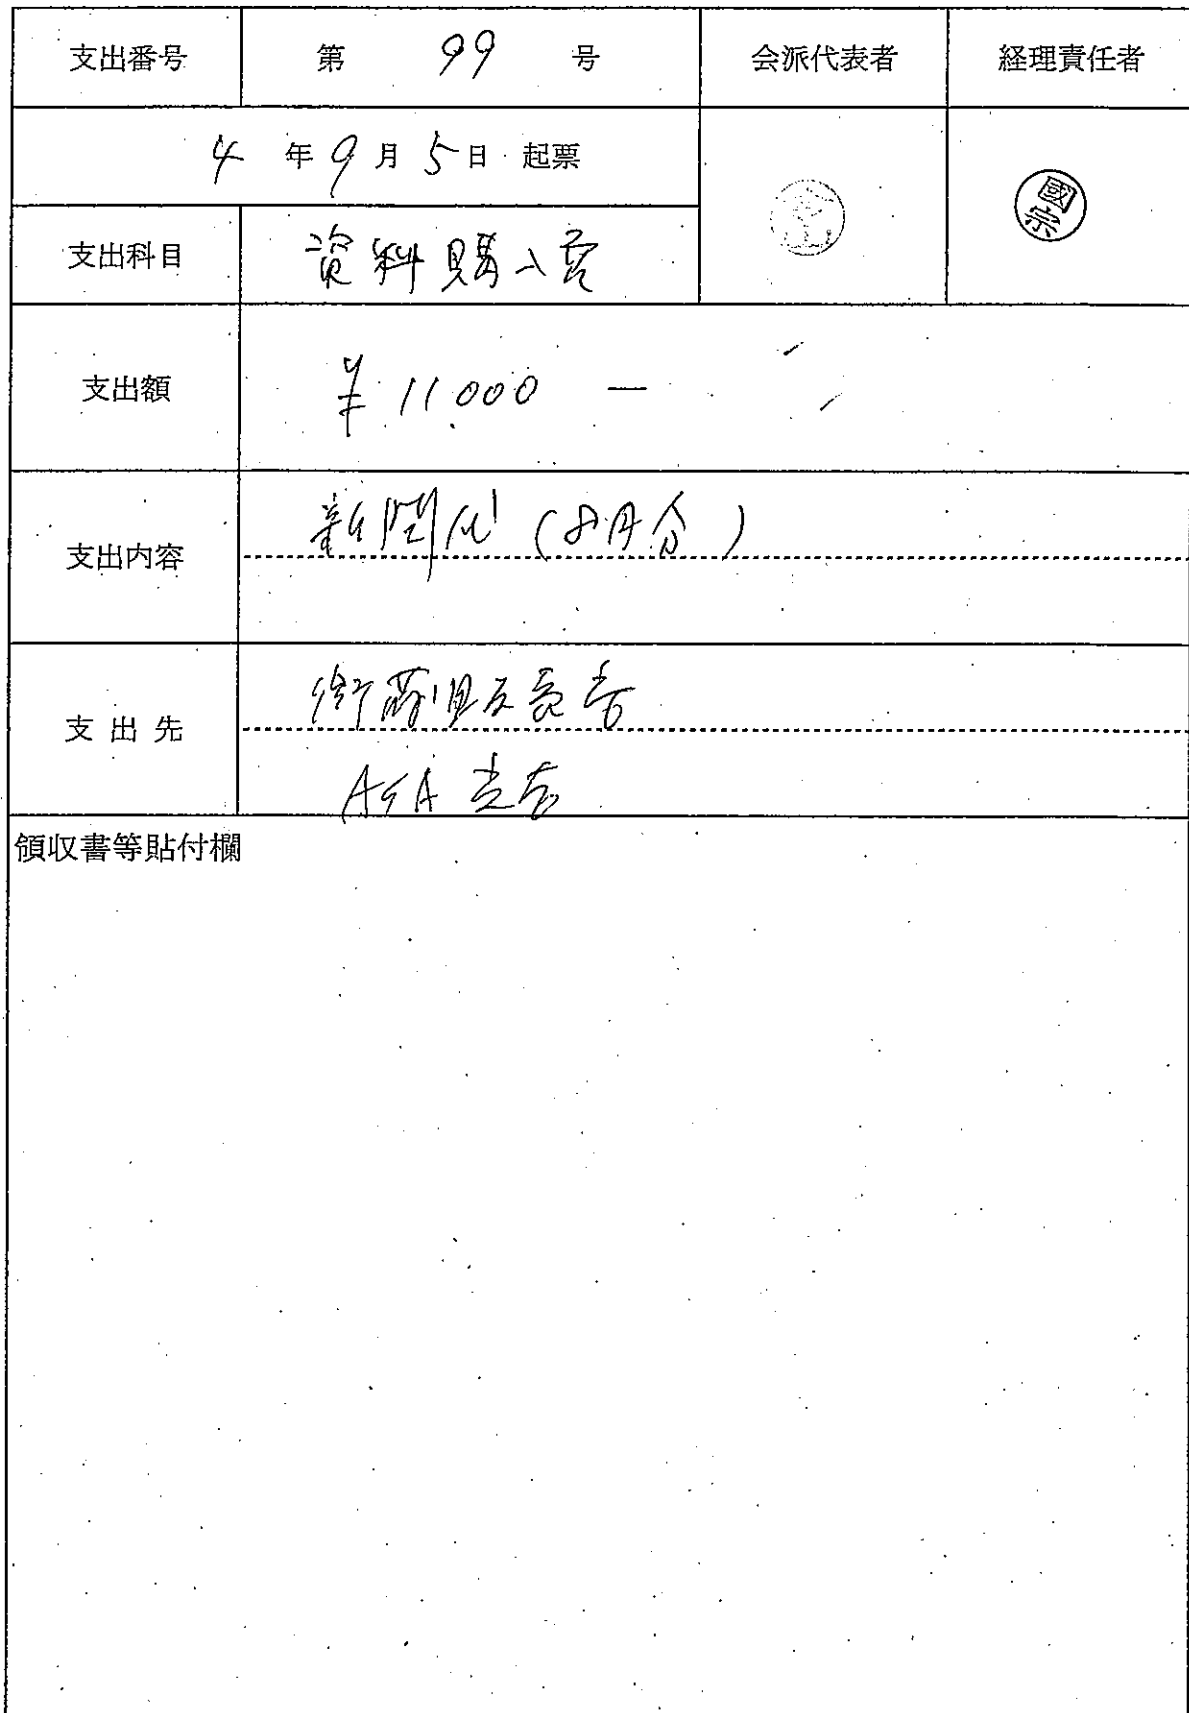 支出番号 第 99 号 会派代表者 経理責任者
4 年 9 月 5 日 起票
國宗
支出科目 資料購入費
支出額 ¥11,000 ―
支出内容 新聞代 (8月分)
支出先
ASA
領収書等貼付欄